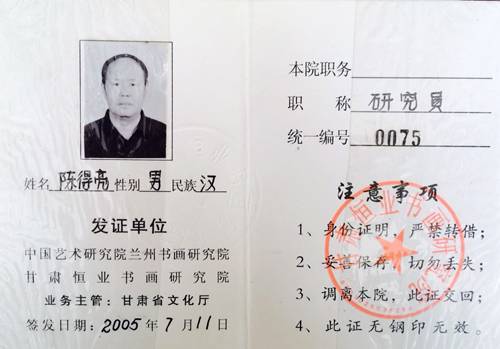 姓名 陈得亮 性别 男 民族 汉
发证单位
中国艺术研究院兰州书画研究院
甘肃恒业书画研究院
业务主管：甘肃省文化厅
签发日期：2005年7月11日
本院职务
职称 研究员
统一编号 0075
注意事项
1、身份证明，严禁转借；
2、妥善保存，切勿丢失；
3、调离本院，此证交回；
4、此证无钢印无效。
甘肃恒业书画研究院